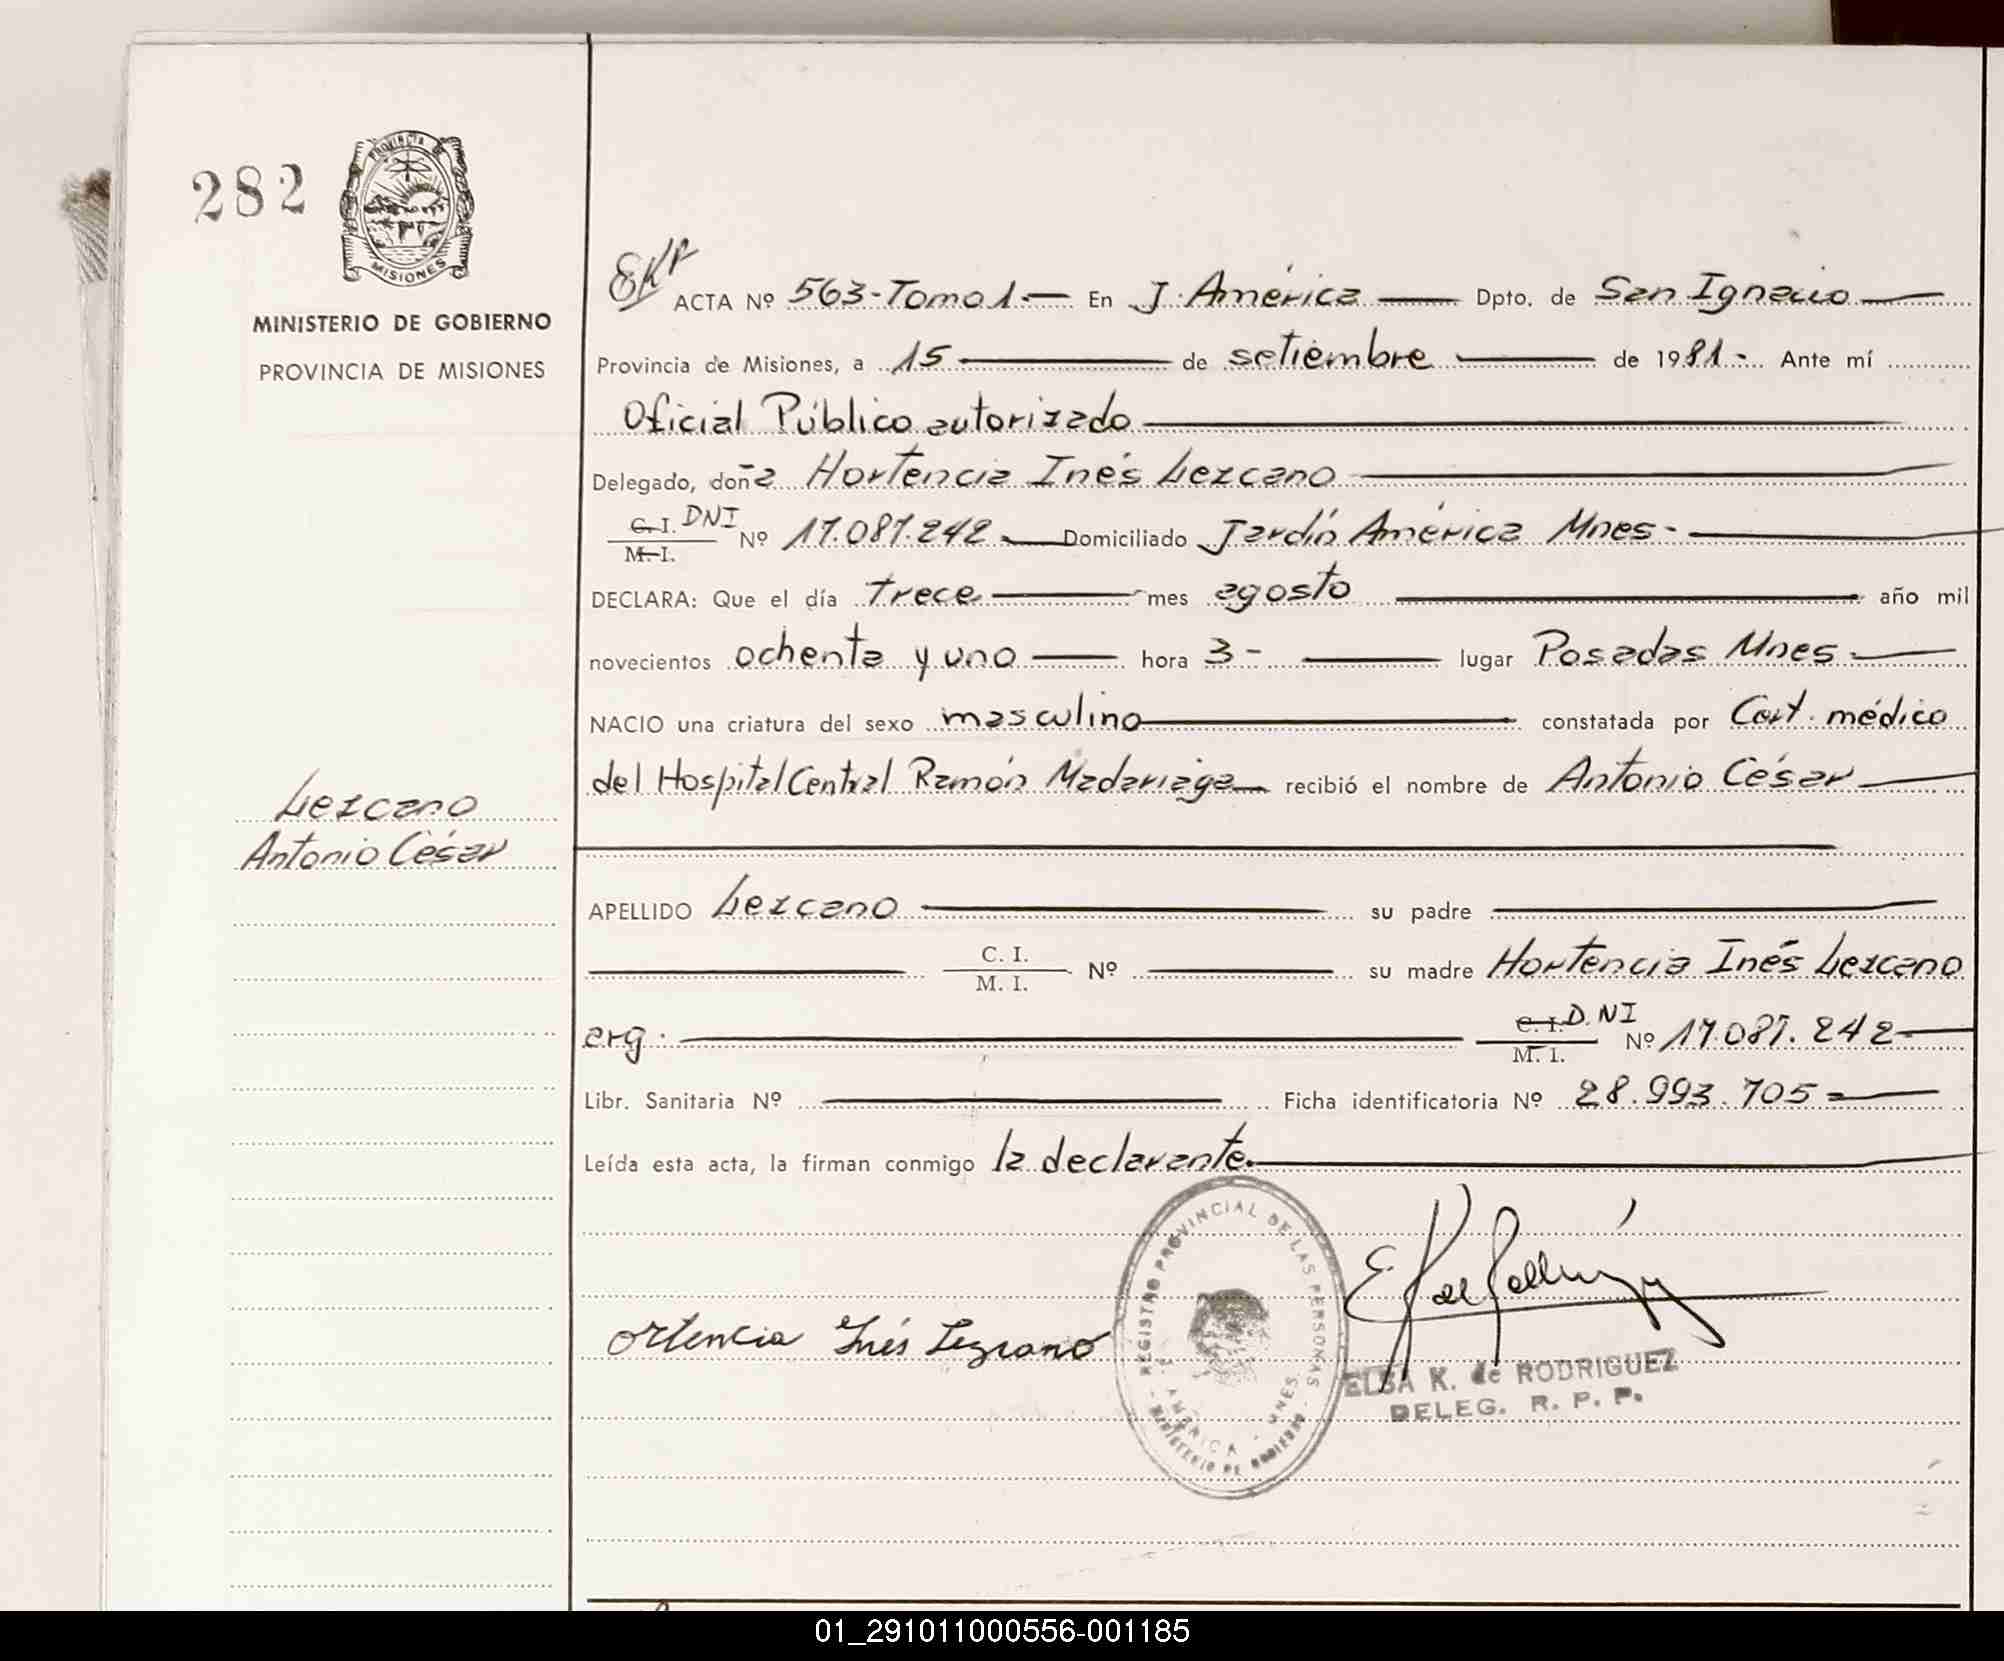 282
PROVINCIA DE
MISIONES
MINISTERIO DE GOBIERNO
PROVINCIA DE MISIONES
Lezcano
Antonio César
ACTA Nº 563-Tomo 1.— En J. América — Dpto. de San Ignacio —
Provincia de Misiones, a 15 — de setiembre — de 1981.- Ante mí
Oficial Público autorizado —
Delegado, doña Hortencia Inés Lezcano —
C. I. DNI
M. I. Nº 17.087.242 — Domiciliado Jardín América Mnes- —
DECLARA: Que el día trece — mes agosto — año mil
novecientos ochenta y uno — hora 3- — lugar Posadas Mnes —
NACIO una criatura del sexo masculino — constatada por Cert. médico
del Hospital Central Ramón Madariaga — recibió el nombre de Antonio César —
APELLIDO Lezcano — su padre —
— C. I.
M. I. Nº — su madre Hortencia Inés Lezcano
arg. — C. I. D.NI
M. I. Nº 17.087.242 —
Libr. Sanitaria Nº — Ficha identificatoria Nº 28.993.705 —
Leída esta acta, la firman conmigo la declarante. —
ortencia Inés Lezcano
REGISTRO PROVINCIAL DE LAS PERSONAS
AMÉRICA - MNES.
MINISTERIO DE GOBIERNO
ELSA K. de RODRIGUEZ
DELEG. R. P. P.
01_291011000556-001185